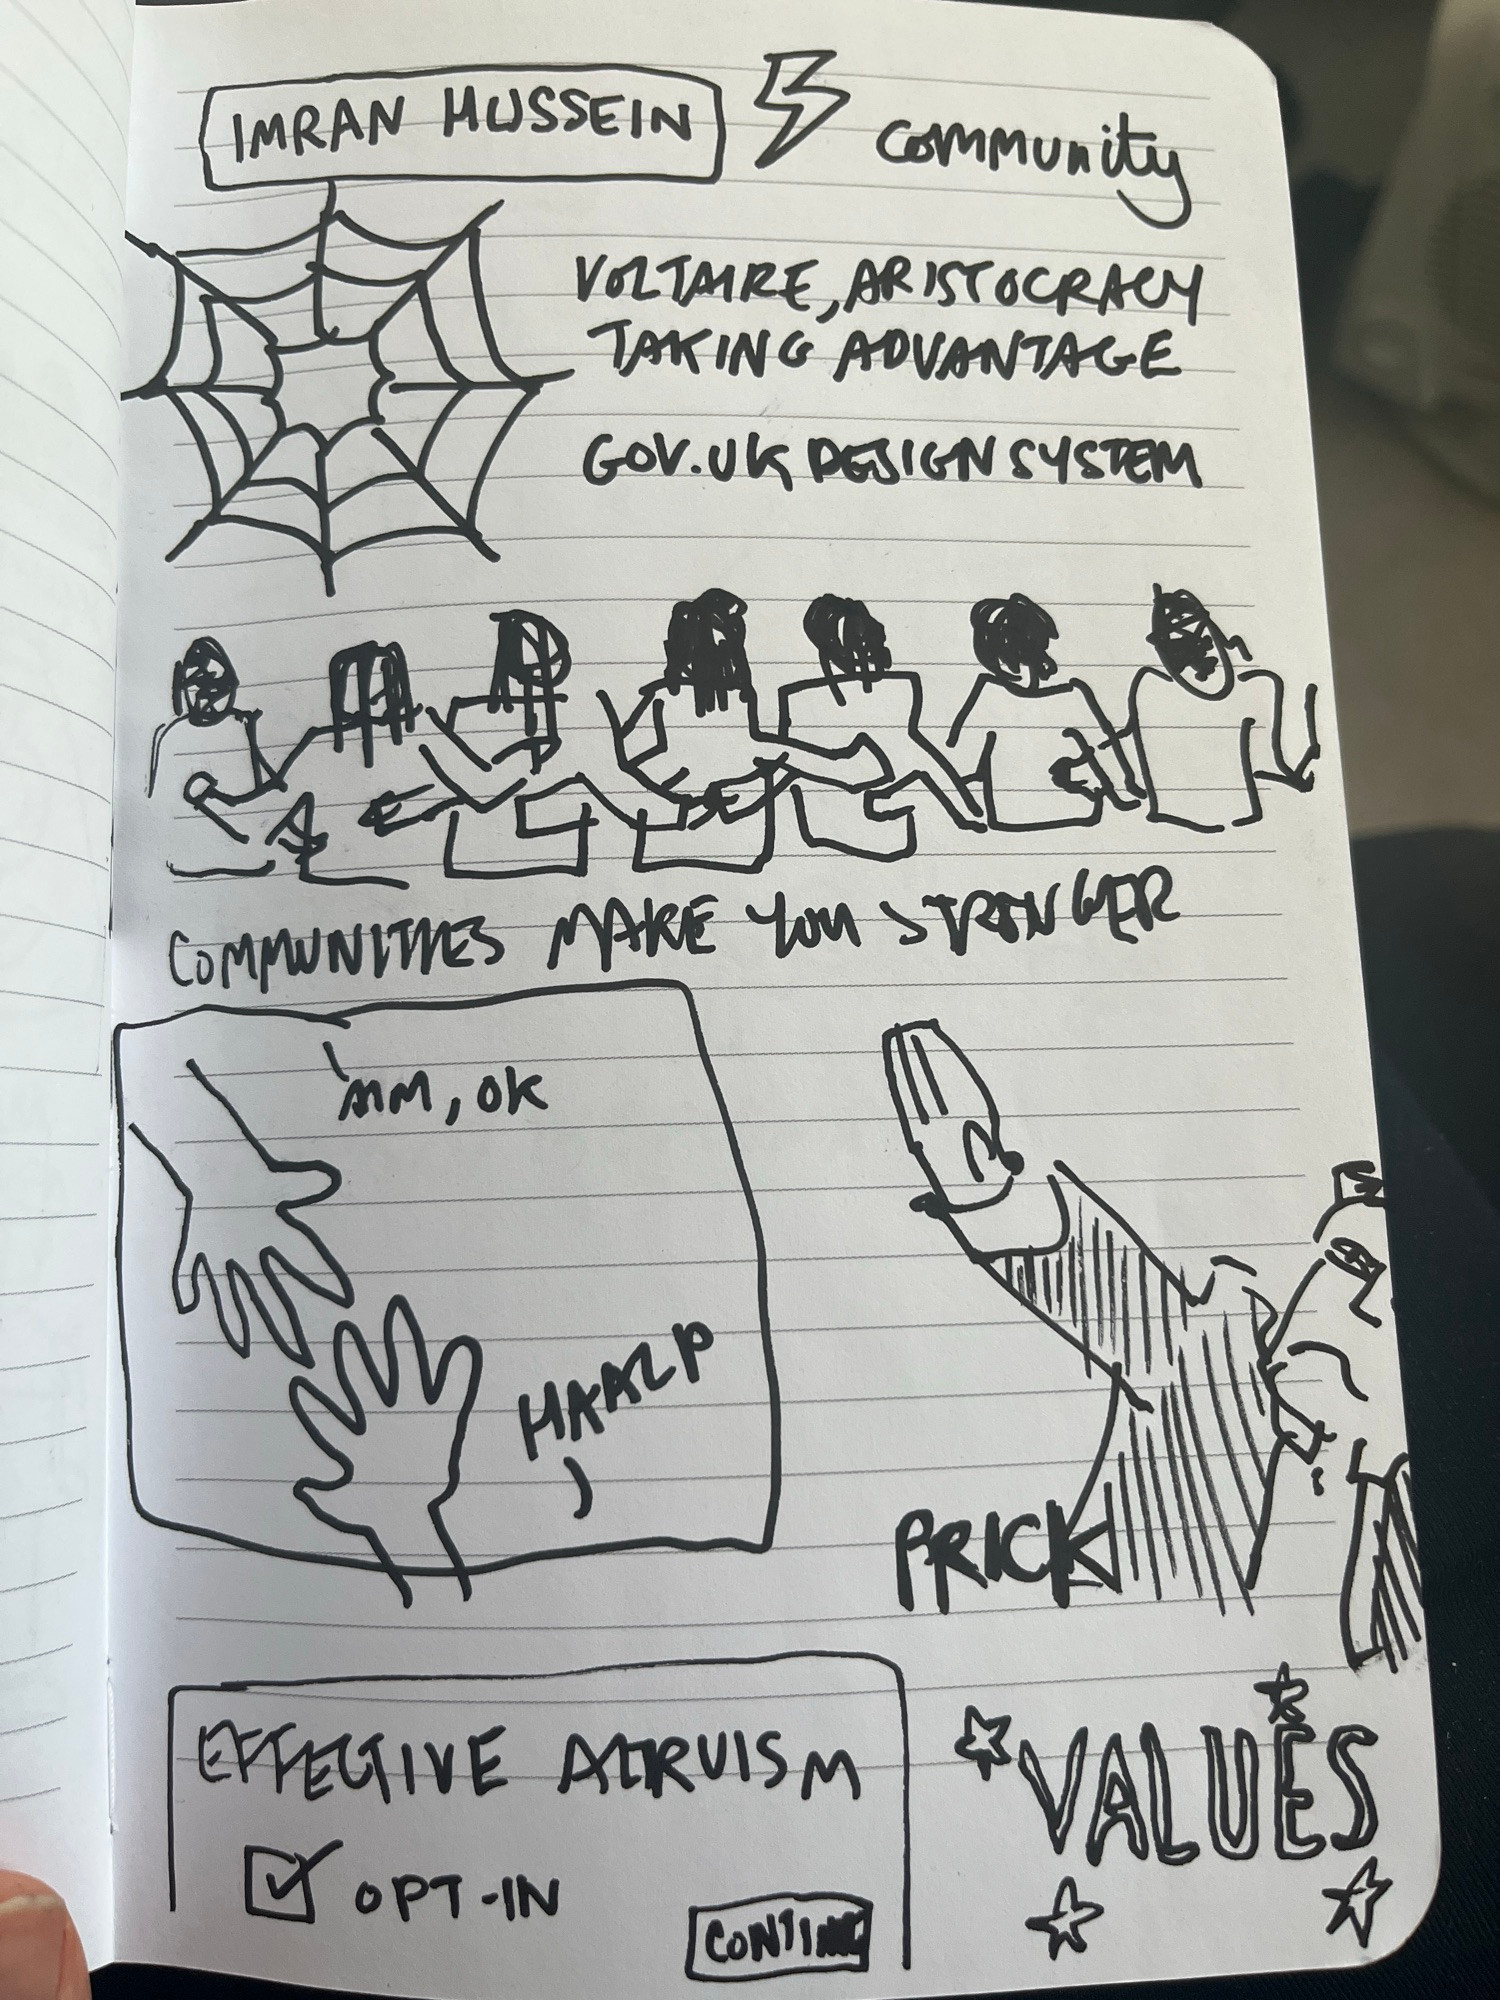 IMRAN HUSSEIN
community
VOLTAIRE, ARISTOCRACY
TAKING ADVANTAGE
GOV.UK DESIGN SYSTEM
COMMUNITIES MAKE YOU STRONGER
MM, OK
HAALP
PRICK
EFFECTIVE ALTRUISM
OPT-IN
VALUES